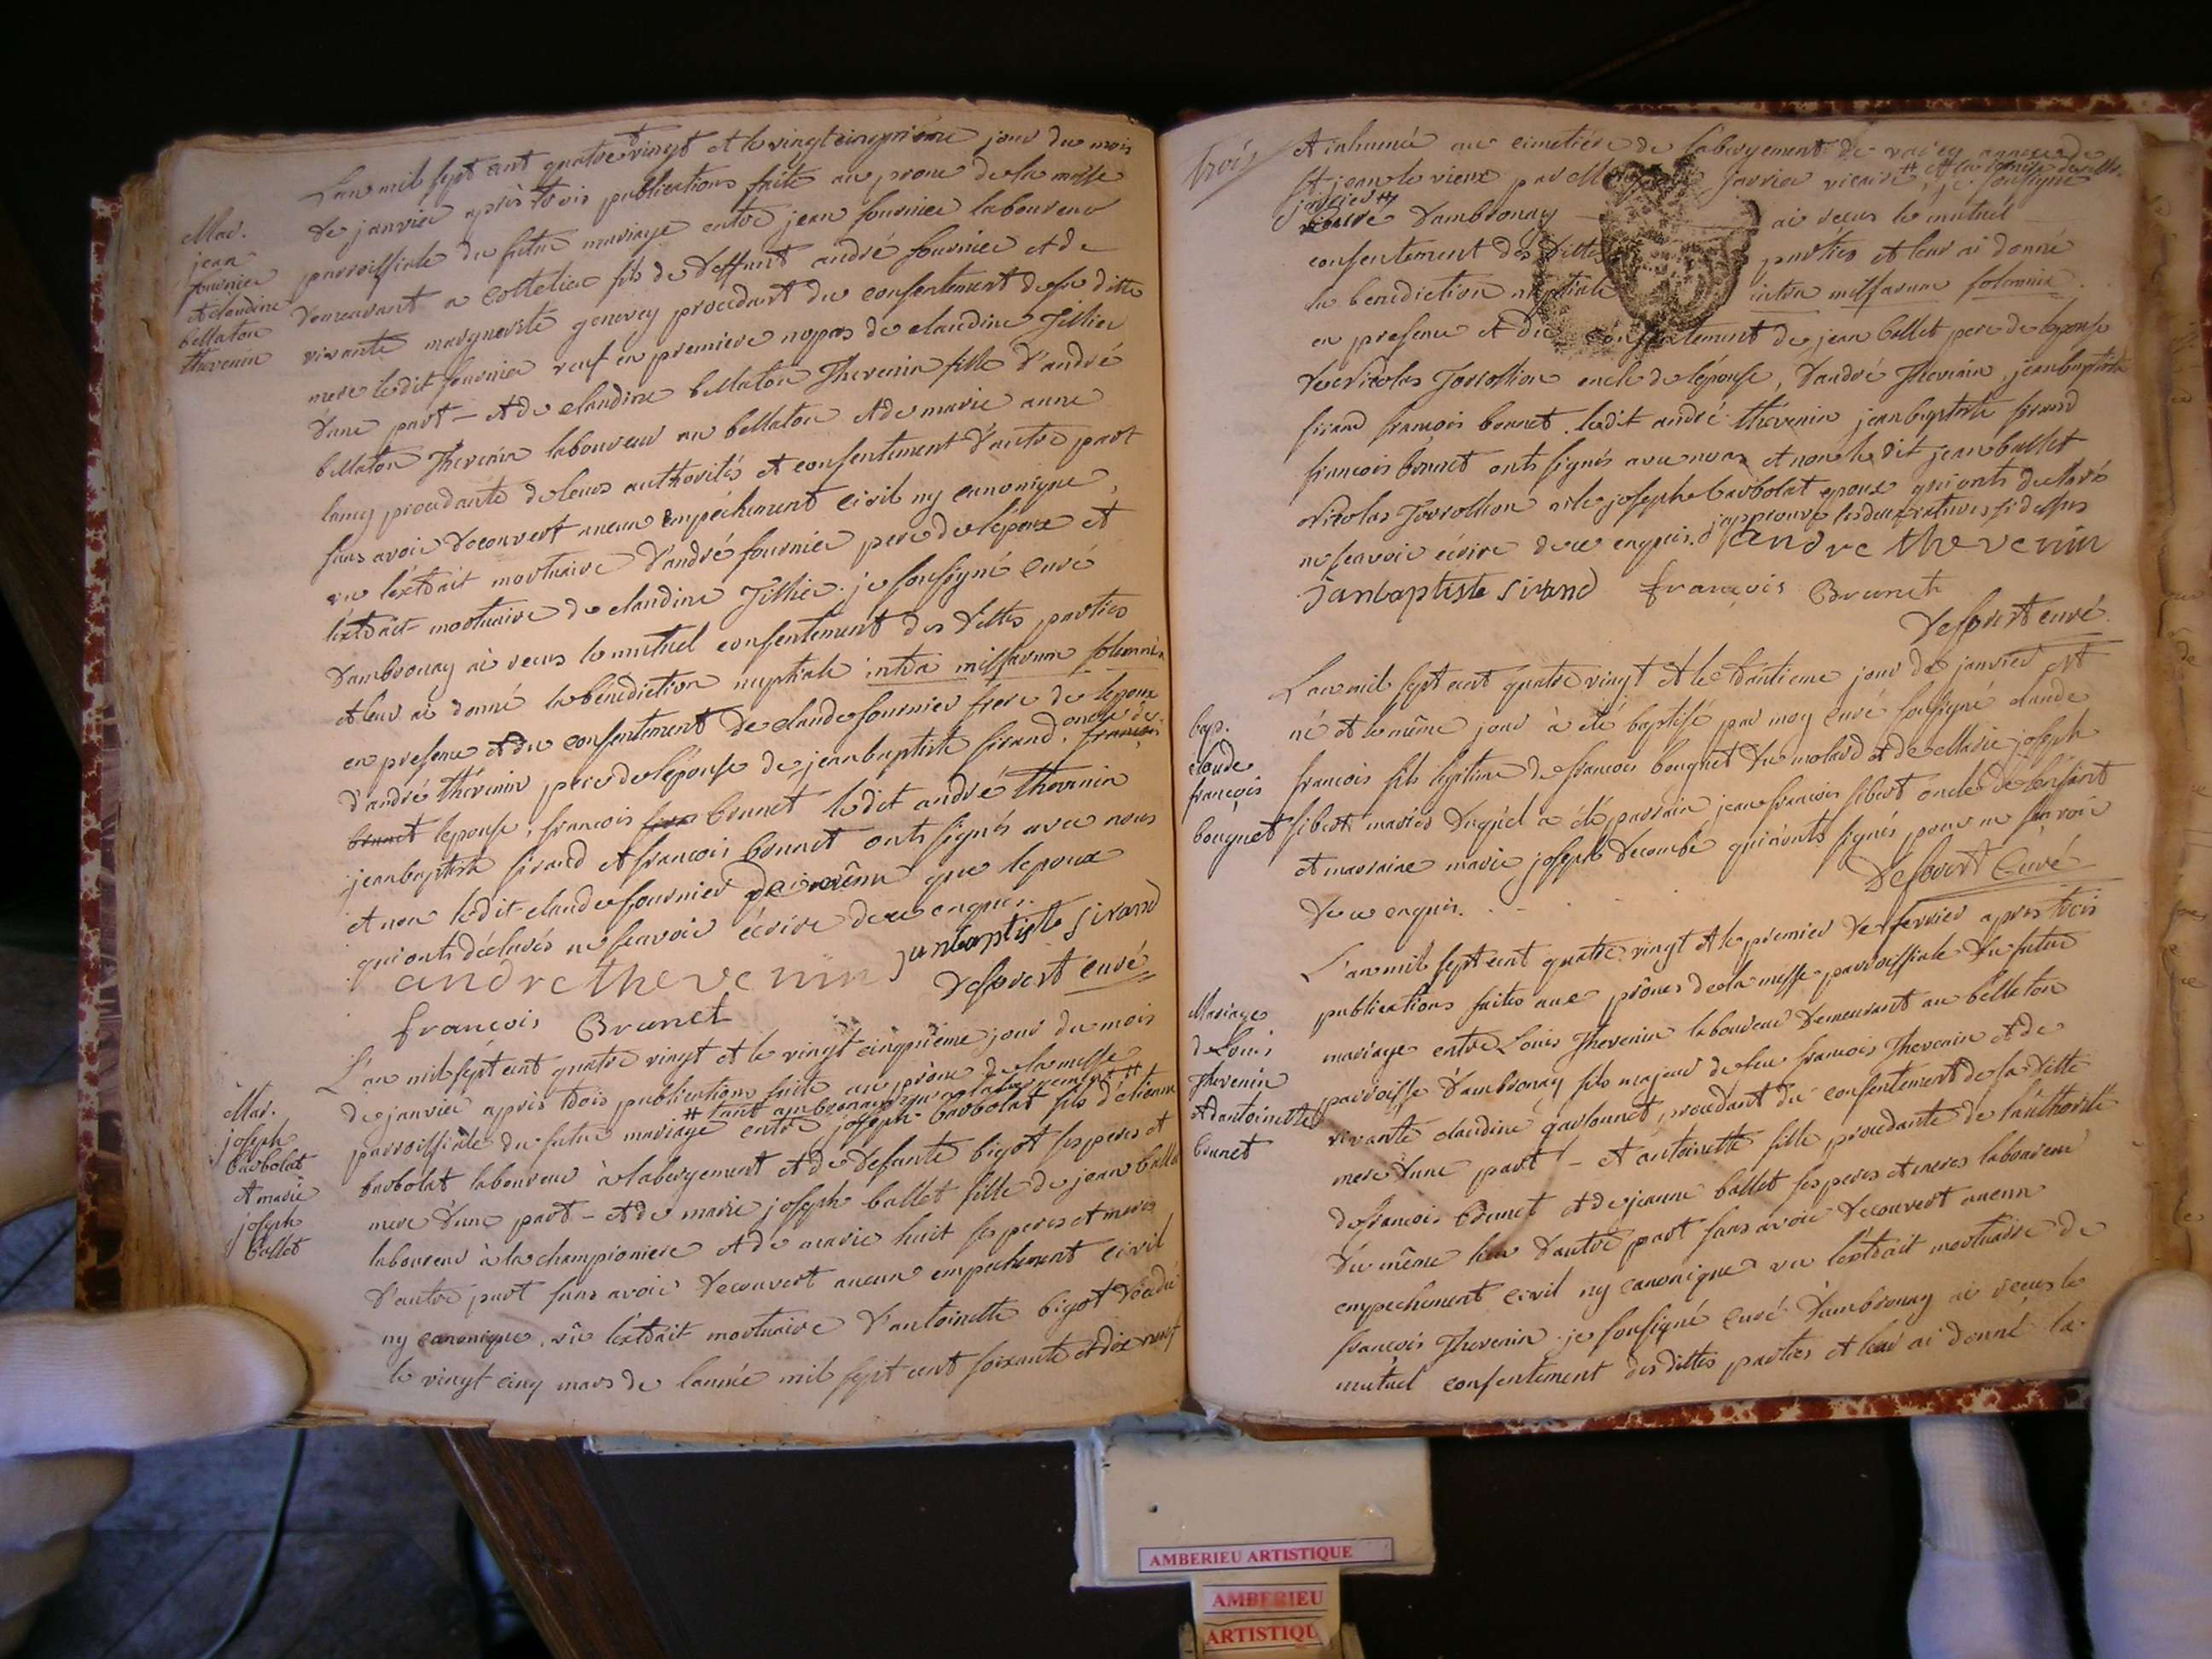 L'an mil sept cent quatre vingt et le vingt cinquieme jour du mois
de janvier après trois publications faite au prone de la messe
parroissiale du futur mariage entre jean fournier laboureur
demeurant a Cottelieu fils de deffunt andré fournier et de
vivante marguerite genevey procedant du consentement de sa ditte
mere ledit fournier veuf en premiere nopces de claudine Tillier
d'une part – et de claudine bellaton Thevenin fille d'andré
bellaton Thevenin laboureur au bellaton et de marie anne
lamy procedante de leurs authorités et consentement d'autre part
sans avoir decouvert aucun empêchement civil ny canonique,
vu l'extrait mortuaire d'andré fournier pere de lépoux et
l'extrait mortuaire de claudine Tillier. je soussigné Curé
d'ambronay ai recus le mutuel consentement des dittes parties
et leur ai donné la bénédiction nuptiale intra missarum solemnia
en presence et du consentement de claude fournier frere de lepoux
d'andré thévenin pere de l'épouse de jeanbaptiste sirand, oncle de
brunet lepouse, francois brunet ledit andré thevenin
jeanbaptiste sirand et francois brunet onts signés avec nous
et non ledit claude fournier de même que lepoux
qui onts déclarés ne scavoir écrire de ce enquis.
andre thevenin janbaptiste sirand
françois Brunet Desport curé
Mar.
jean
fournier
et claudine
bellaton
thevenin
L'an mil sept cent quatre vingt et le vingt cinquième jour du mois
de janvier après trois publications faite au prône de la messe
# tant ambronay qu'a labergement #
parroissiale du futur mariage entre joseph barbolat fils d'etienne
barbolat laboureur à labergement et de defante bigot ses peres et
mere d'une part – et de marie joseph ballet fille de jean ballet
laboureur à la championiere et de marie huit ses peres et meres
d'autre part sans avoir decouvert aucun empechement civil
ny canonique, vû l'extrait mortuaire d'antoinette bigot décédé
le vingt cinq mars de lannée mil sept cent soixante et dix neuf
Mar.
joseph
barbolat
et marie
joseph
ballet
trois
et inhumée au cimetière de labergement de varey annexe de
St jean le vieux par Mr javrier vicaire #, je soussigné
javrier #
vicaire d'ambronay ai recus le mutuel
consentement des dittes parties et leur ai donné
la benediction nuptiale intra missarum solemnia.
en presence et du consentement de jean ballet pere de lepouse
de Nicolas Jorrollion oncle de lépouse, d'andré Thevenin, jeanbaptiste
sirand françois brunet. ledit andré thevenin jeanbaptiste sirand
francois brunet onts signés avec nous et non le dit jean ballet
Nicolas Jorrollion ni le joseph barbolat epoux qui onts declaré
ne scavoir écrire de ce enquis. j'approuve les deux ratures si dessus
andre thevenin
janbaptiste sirand françois Brunet
Desport curé.
L'an mil sept cent quatre vingt et le trantieme jour de janvier est
né et le même jour à été baptisé par moy curé soussigné claude
francois fils legitime de francois bouguet du molard et de Marie joseph
sibert mariés duquel a été parrain jean francois sibert oncle de lenfant
et marraine marie joseph Decombe qui n'onts signés pour ne scavoir
de ce enquis.
Desport Curé
bap.
claude
françois
bouguet
L'an mil sept cent quatre vingt et le premier de fevrier apres trois
publications faites aux prônes de la messe parroissiale du futur
mariage entre Louis Thevenin laboureur demeurant au bellaton
parroisse d'ambronay fils majeur de feu francois Thevenin et de
vivante claudine gaillounet, procedant du consentement de sa ditte
mere d'une part – et antoinette fille procedante de l'authorité
de francois brunet et de jeanne ballet ses peres et meres laboureur
du même lieu d'autre part sans avoir decouvert aucun
empechement civil ny canonique vu l'extrait mortuaire de
françois Thevenin. je soussigné curé d'ambronay ai recus le
mutuel consentement des dittes parties et leur ai donné la
Mariage
de Louis
Thevenin
et antoinette
brunet
AMBERIEU ARTISTIQUE
AMBERIEU
ARTISTIQU